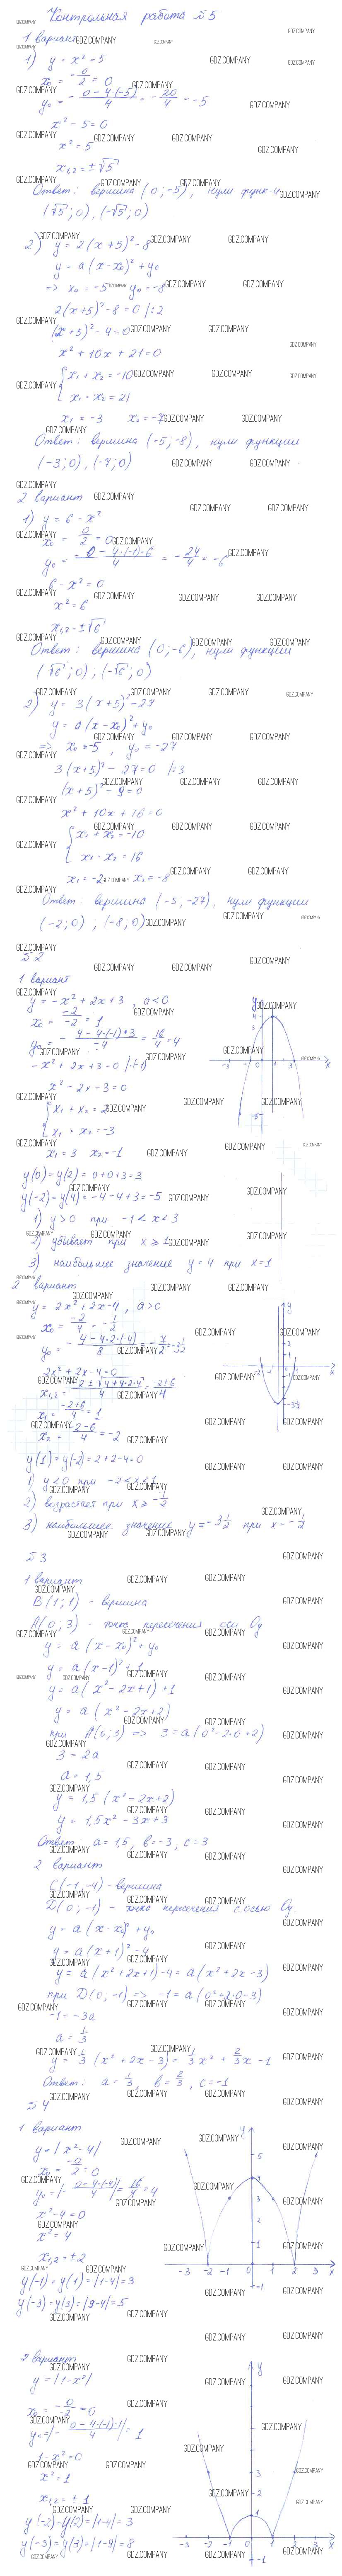 Контрольная работа №5
1 вариант
1) y = x² - 5
x₀ = -0/2 = 0
y₀ = - (0 - 4·(-5))/4 = - 20/4 = -5
x² - 5 = 0
x² = 5
x₁,₂ = ±√5
Ответ: вершина (0; -5), нули функ-и
(√5; 0), (-√5; 0)
2) y = 2(x+5)² - 8
y = a(x-x₀)² + y₀
=> x₀ = -5 y₀ = -8
2(x+5)² - 8 = 0 |:2
(x+5)² - 4 = 0
x² + 10x + 21 = 0
{ x₁ + x₂ = -10
x₁ · x₂ = 21
x₁ = -3 x₂ = -7
Ответ: вершина (-5; -8), нули функции
(-3; 0), (-7; 0)
2 вариант
1) y = 6 - x²
x₀ = 0/2 = 0
y₀ = - (0 - 4·(-1)·6)/4 = - 24/4 = -6
6 - x² = 0
x² = 6
x₁,₂ = ±√6
Ответ: вершина (0; -6), нули функции
(√6; 0), (-√6; 0)
2) y = 3(x+5)² - 27
y = a(x-x₀)² + y₀
=> x₀ = -5, y₀ = -27
3(x+5)² - 27 = 0 |:3
(x+5)² - 9 = 0
x² + 10x + 16 = 0
{ x₁ + x₂ = -10
x₁ · x₂ = 16
x₁ = -2 x₂ = -8
Ответ: вершина (-5; -27), нули функции
(-2; 0); (-8; 0)
№2
1 вариант
y = -x² + 2x + 3, a < 0
x₀ = -2/-2 = 1
y₀ = - (4 - 4·(-1)·3)/-4 = 16/4 = 4
-x² + 2x + 3 = 0 |·(-1)
x² - 2x - 3 = 0
{ x₁ + x₂ = 2
x₁ = x₂ = -3
x₁ = 3 x₂ = -1
y(0) = y(2) = 0 + 0 + 3 = 3
y(-2) = y(4) = -4 - 4 + 3 = -5
1) y > 0 при -1 < x < 3
2) убывает при x ≥ 1
3) наибольшее значение y = 4 при x = 1
2 вариант
y = 2x² + 2x - 4, a > 0
x₀ = -2/4 = -1/2
y₀ = - (4 - 4·2·(-4))/8 = - 7/2 = -3 1/2
2x² + 2x - 4 = 0
x₁,₂ = (-2 ± √(4+4·2·4))/4 = (-2±6)/4
x₁ = (-2+6)/4 = 1
x₂ = (-2-6)/4 = -2
y(1) = y(-2) = 2 + 2 - 4 = 0
1) y < 0 при -2 < x < 1
2) возрастает при x ≥ -1/2
3) наибольшее значение y = -3 1/2 при x = -1/2
№3
1 вариант
B(1; 1) - вершина
A(0; 3) - точка пересечения оси Oy
y = a(x-x₀)² + y₀
y = a(x-1)² + 1
y = a(x² - 2x + 1) + 1
y = a(x² - 2x + 2)
при A(0; 3) => 3 = a(0² - 2·0 + 2)
3 = 2a
a = 1,5
y = 1,5(x² - 2x + 2)
y = 1,5x² - 3x + 3
Ответ: a = 1,5, b = -3, c = 3
2 вариант
C(-1, -4) - вершина
D(0; -1) - точка пересечения с осью Oy.
y = a(x-x₀)² + y₀
y = a(x+1)² - 4
y = a(x² + 2x + 1) - 4 = a(x² + 2x - 3)
при D(0; -1) => -1 = a(0² + 2·0 - 3)
-1 = -3a
a = 1/3
y = 1/3(x² + 2x - 3) = 1/3x² + 2/3x - 1
Ответ: a = 1/3, b = 2/3, c = -1
№4
1 вариант
y = |x² - 4|
x₀ = -0/2 = 0
y₀ = |- (0 - 4·(-4))/4| = 16/4 = 4
x² - 4 = 0
x² = 4
x₁,₂ = ±2
y(-1) = y(1) = |1-4| = 3
y(-3) = y(3) = |9-4| = 5
2 вариант
y = |1 - x²|
x₀ = -0/-2 = 0
y₀ = |- (0 - 4·(-1)·1)/4| = 1
1 - x² = 0
x² = 1
x₁,₂ = ±1
y(-2) = y(2) = |1-4| = 3
y(-3) = y(3) = |1-9| = 8